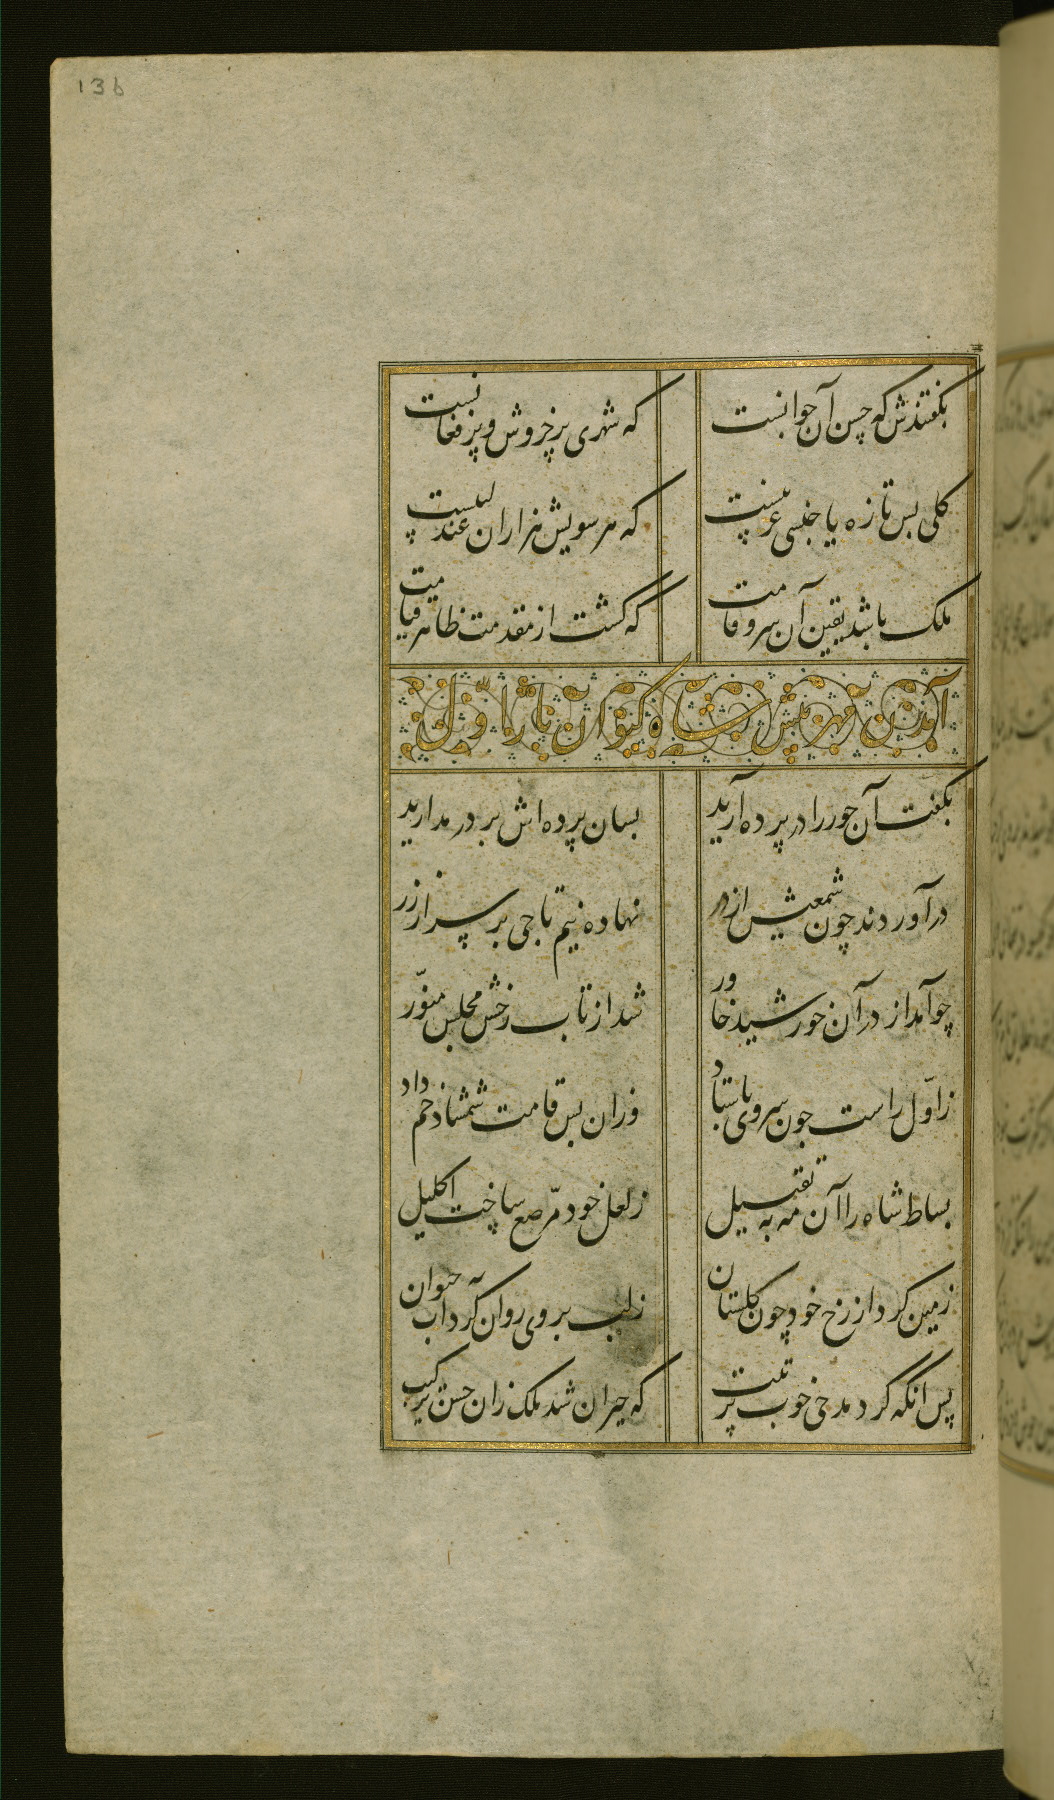 136
بگفتندش که حسن آن جوانست که شهری پرخروش و پرفغانست
گلی بس تازه یا جنسی غریبست که هر سویش هزاران عندلیبست
ملک باشد یقین آن سرو قامت که گشت از مقدمت ظاهر قیامت
آمدن مهر پیش شاه کیوان بار اول
بگفت آن حور را در پرده آرید بسان پرده اش بر در مدارید
درآوردند چون شمعیش از در نهاده نیم تاجی بر سر از زر
چو آمد از در آن خورشید خاور شد از تاب رخش مجلس منوّر
ز اوّل راست چون سروی باستاد وزان پس قامت شمشاد خم داد
بساط شاه را آن مه به تقبیل ز لعل خود مرّصع ساخت اکلیل
زمین کرد از رخ خود چون گلستان ز لب بر وی روان کرد آب حیوان
پس انگه کرد مدحی خوب ترتیب که حیران شد ملک زان حسن ترکیب